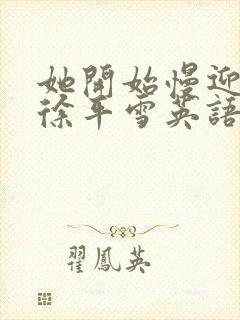 她開始慢迎
徐平雪英語
翟鳳英